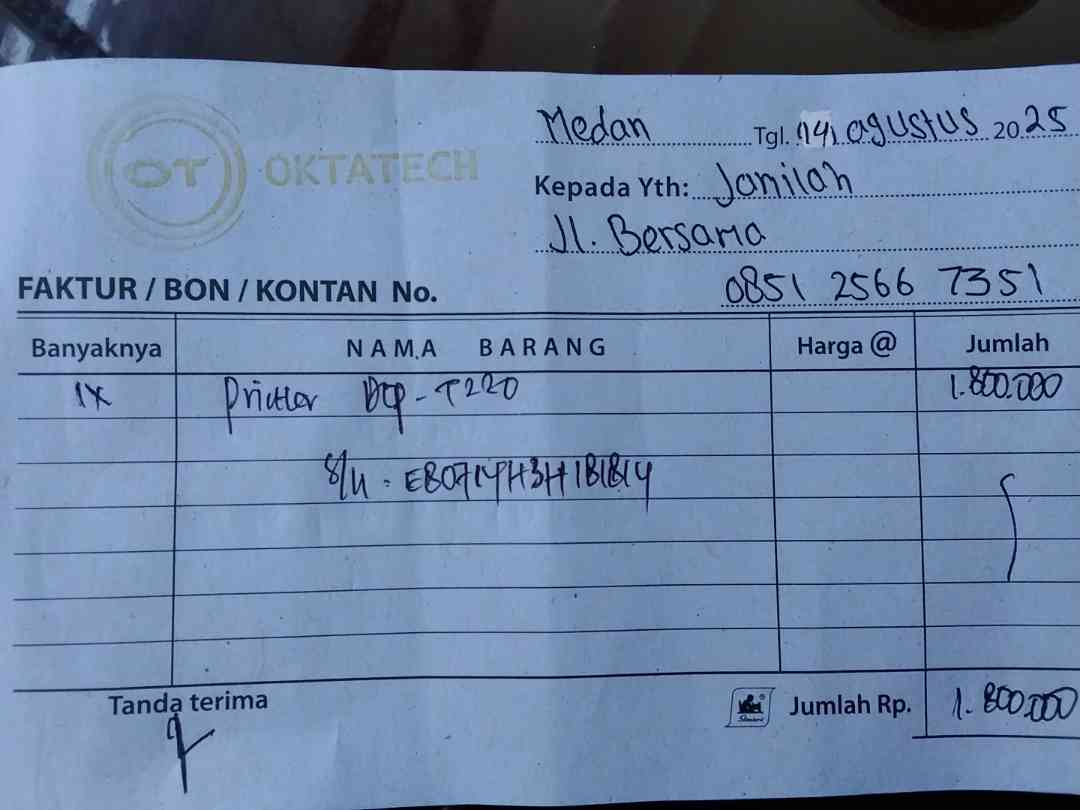 OT OKTATECH
Medan Tgl. 14 agustus 2025
Kepada Yth: Jamilah
Jl. Bersama
0851 2566 7351
FAKTUR / BON / KONTAN No.
Banyaknya NAMA BARANG Harga @ Jumlah
1x Printer Dcp-T220 1.800.000
S/N : E80714H3H181814
Tanda terima Jumlah Rp. 1.800.000